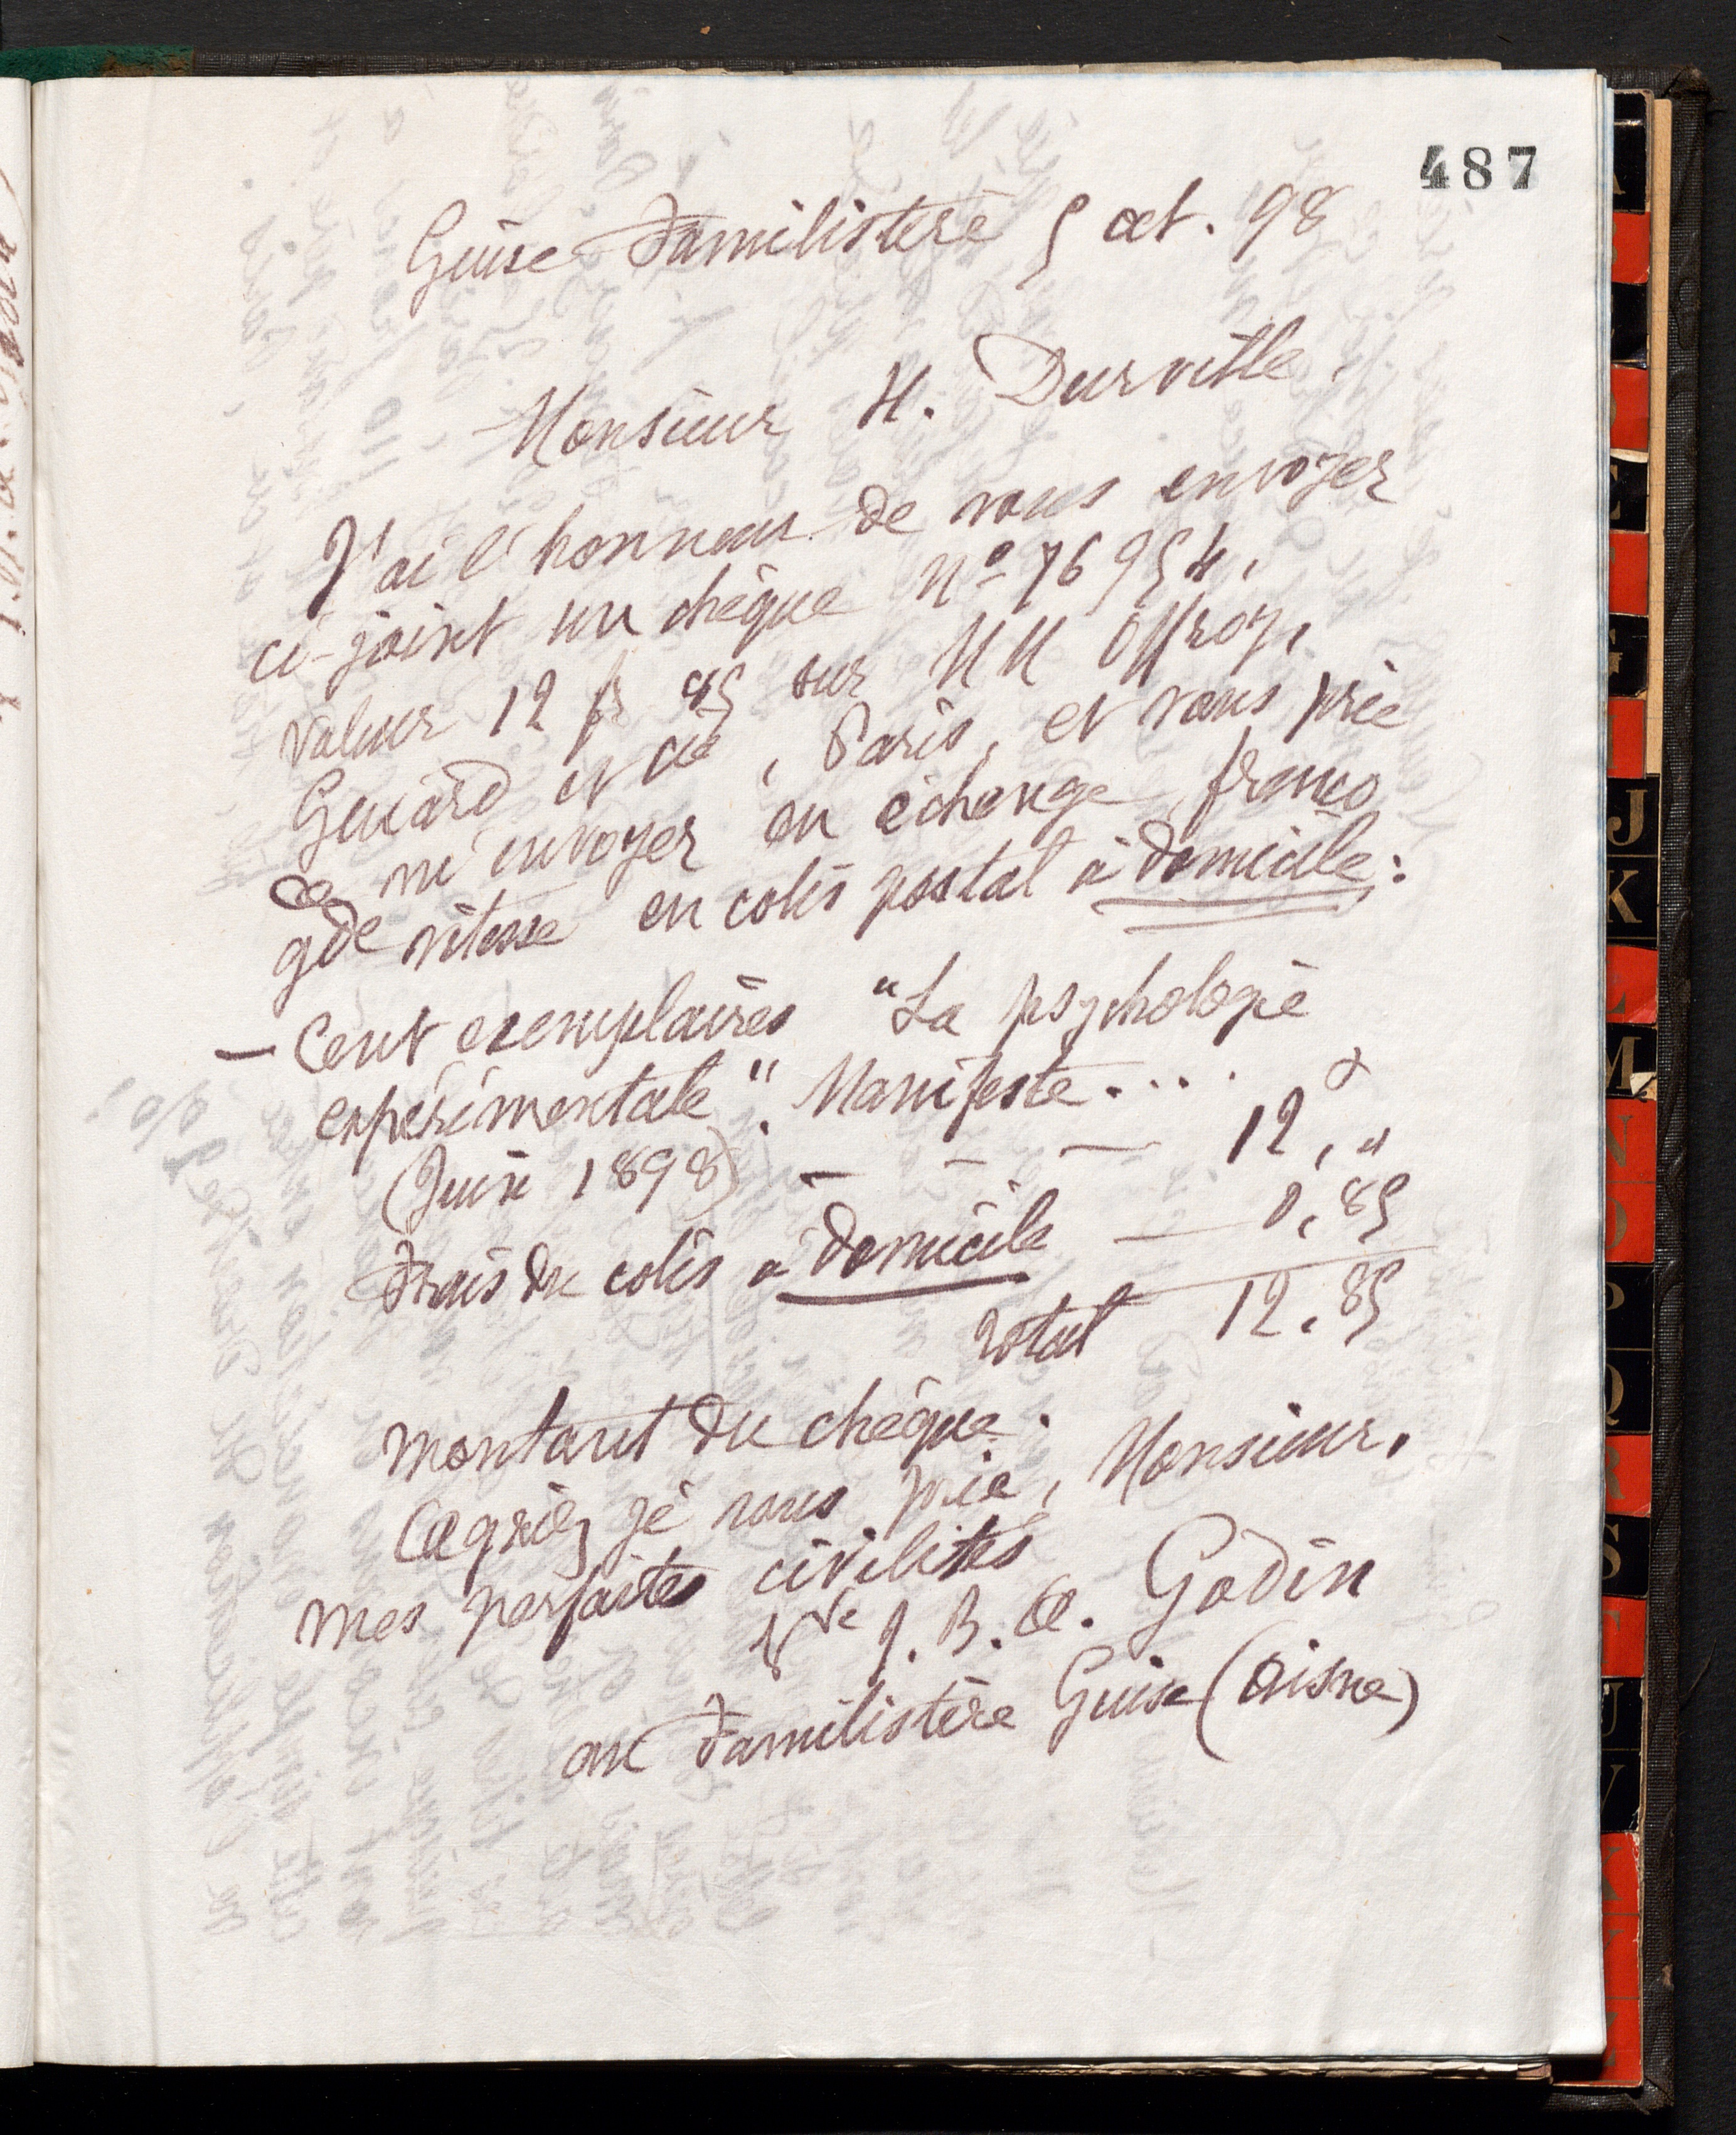 487
Guise Familistère 5 oct. 98
Monsieur H. Durville,
J'ai l'honneur de vous envoyer
ci-joint un chèque Nº 76954,
valeur 12 fr 85 sur MM Offroy,
Guiard et Cie, Paris, et vous prie
de m'envoyer en échange, franco
gde vitesse en colis postal à domicile:
— Cent exemplaires "La psychologie
expérimentale". Manifeste....
(Juin 1898) — — — 12, "
Frais du colis à domicile — 0,85
Total 12.85
montant du chèque.
Agréez je vous prie, Monsieur,
mes parfaites civilités
Vve J. B. A. Godin
au Familistère Guise (Aisne)
J
K
M
Q
R
S